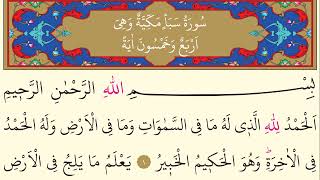 سُورَةُ سَبَأٍ مَكِّيَّةٌ وَهِىَ
اَرْبَعٌ وَخَمْسُونَ اٰيَةً
بِسْمِ اللّٰهِ الرَّحْمٰنِ الرَّحٖيمِ
اَلْحَمْدُ لِلّٰهِ الَّذٖى لَهُ مَا فِى السَّمٰوَاتِ وَمَا فِى الْاَرْضِ وَلَهُ الْحَمْدُ
فِى الْاٰخِرَةِؕ وَهُوَ الْحَكٖيمُ الْخَبٖيرُ ١ يَعْلَمُ مَا يَلِجُ فِى الْاَرْضِ